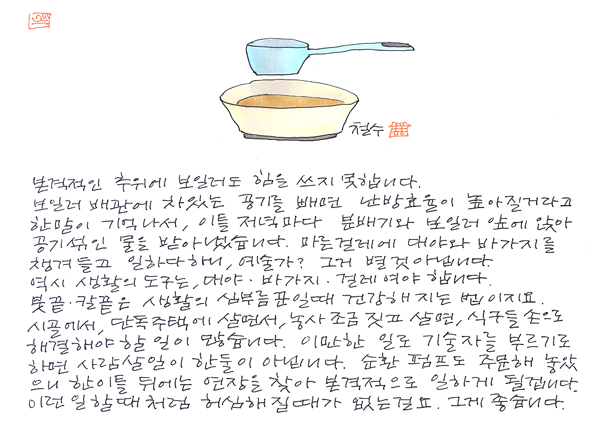 철수
본격적인 추위에 보일러도 힘을 쓰지 못합니다.
보일러 배관에 차있는 공기를 빼면 난방효율이 높아질거라고
한말이 기억나서, 이틀 저녁마다 분배기와 보일러 앞에 앉아
공기섞인 물을 받아냈습니다. 마른걸레에 대야와 바가지를
챙겨들고 일하다하니, 예술가? 그거 별것 아닙니다.
역시 생활의 도구는, 대야·바가지·걸레여야 합니다.
붓끝·칼끝은 생활의 심부름꾼일때 건강해지는 법이지요.
시골에서, 단독주택에 살면서, 농사 조금 짓고 살면, 식구들 손으로
해결해야 할 일이 많습니다. 이만한 일로 기술자를 부르기로
하면 사람살일이 한둘이 아닙니다. 순환 펌프도 주문해 놓았
으니 한이틀 뒤에는 연장을 찾아 본격적으로 일하게 될겁니다.
이런 일할때처럼 허심해질때가 없는걸요. 그게 좋습니다.